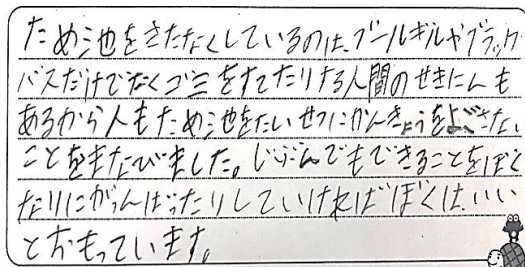 ため池をきたなくしているのは、ブールギルやブラック
バスだけでなくゴミをすてたりする人間のせきにんも
あるから人もため池をたいせつにかんきょうをよごさない
ことをまなびました。じぶんでもできることをぼく
なりにがんばったりしていければぼくは、いい
とおもっています。